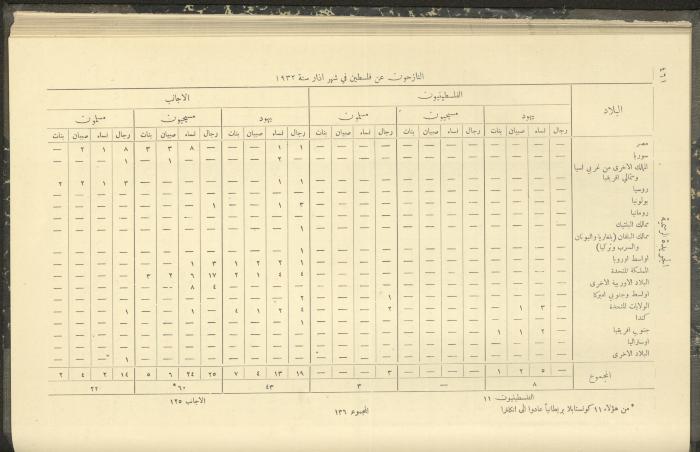 ٤٦١
الجريدة الرسمية
النازحون عن فلسطين في شهر اذار سنة ١٩٣٢
البلاد الفلسطينيون الاجانب
يهود مسيحيون مسلمون يهود مسيحيون مسلمون
رجال نساء صبيان بنات رجال نساء صبيان بنات رجال نساء صبيان بنات رجال نساء صبيان بنات رجال نساء صبيان بنات رجال نساء صبيان بنات
مصر — — — — — — — — — — — — ١ ١ — — — ٨ ٣ ٣ ٨ ١ ٢ —
سوريا — — — — — — — — — — — — — ٢ — — — — ١ — ١ — — —
الممالك الاخرى من غربي اسيا
وشمالي افريقيا — — — — — — — — — — — — ١ ١ — — — — — — ٣ ١ ٢ ٢
روسيا — — — — — — — — — — — — — — — — — — — — — — — —
بولونيا — — — — — — — — — — — — ٣ ١ — — ١ — — — — — — —
رومانيا — — — — — — — — — — — — — — — — — — — — — — — —
ممالك البلتيك — — — — — — — — — — — — ١ — — — — — — — — — — —
ممالك البلقان (بلغاريا واليونان
والسرب وتركيا) — — — — — — — — — — — — ١ — — — — — — — — — — —
اواسط اوروبا — — — — — — — — — — — — ١ ٢ ٢ ١ ٣ ١ — — — — — —
المملكة المتحدة — — — — — — — — — — — — ٤ ٤ ١ ٢ ١٧ ٦ ٢ ٣ — — — —
البلاد الاوربية الاخرى — — — — — — — — — — — — — — — — ٤ ٨ — — — — — —
اواسط وجنوبي اميركا — — — — — — — — ١ — — — ٢ — — — — — — — — — — —
الولايات المتحدة — ٣ ١ — — — — — ٢ — — — ٤ ٢ ١ ٤ — ١ — — ١ — — —
كندا — — — — — — — — — — — — ١ — — — — — — — — — — —
جنوبي افريقيا — ٢ ١ ١ — — — — — — — — — — — — — — — — — — — —
اوستراليا — — — — — — — — — — — — — — — — — — — — — — — —
البلاد الاخرى — — — — — — — — — — — — — — — — — — — — ١ — — —
المجموع — ٥ ٢ ١ — — — — ٣ — — — ١٩ ١٣ ٤ ٧ ٢٥ ٢٤ ٦ ٥ ١٤ ٢ ٤ ٢
٨ — ٣ ٤٣ ٦٠* ٢٢
الفلسطينيون ١١ الاجانب ١٢٥
*من هؤلاء ١١ كونستابلا بريطانياً عادوا الى انكلترا المجموع ١٣٦